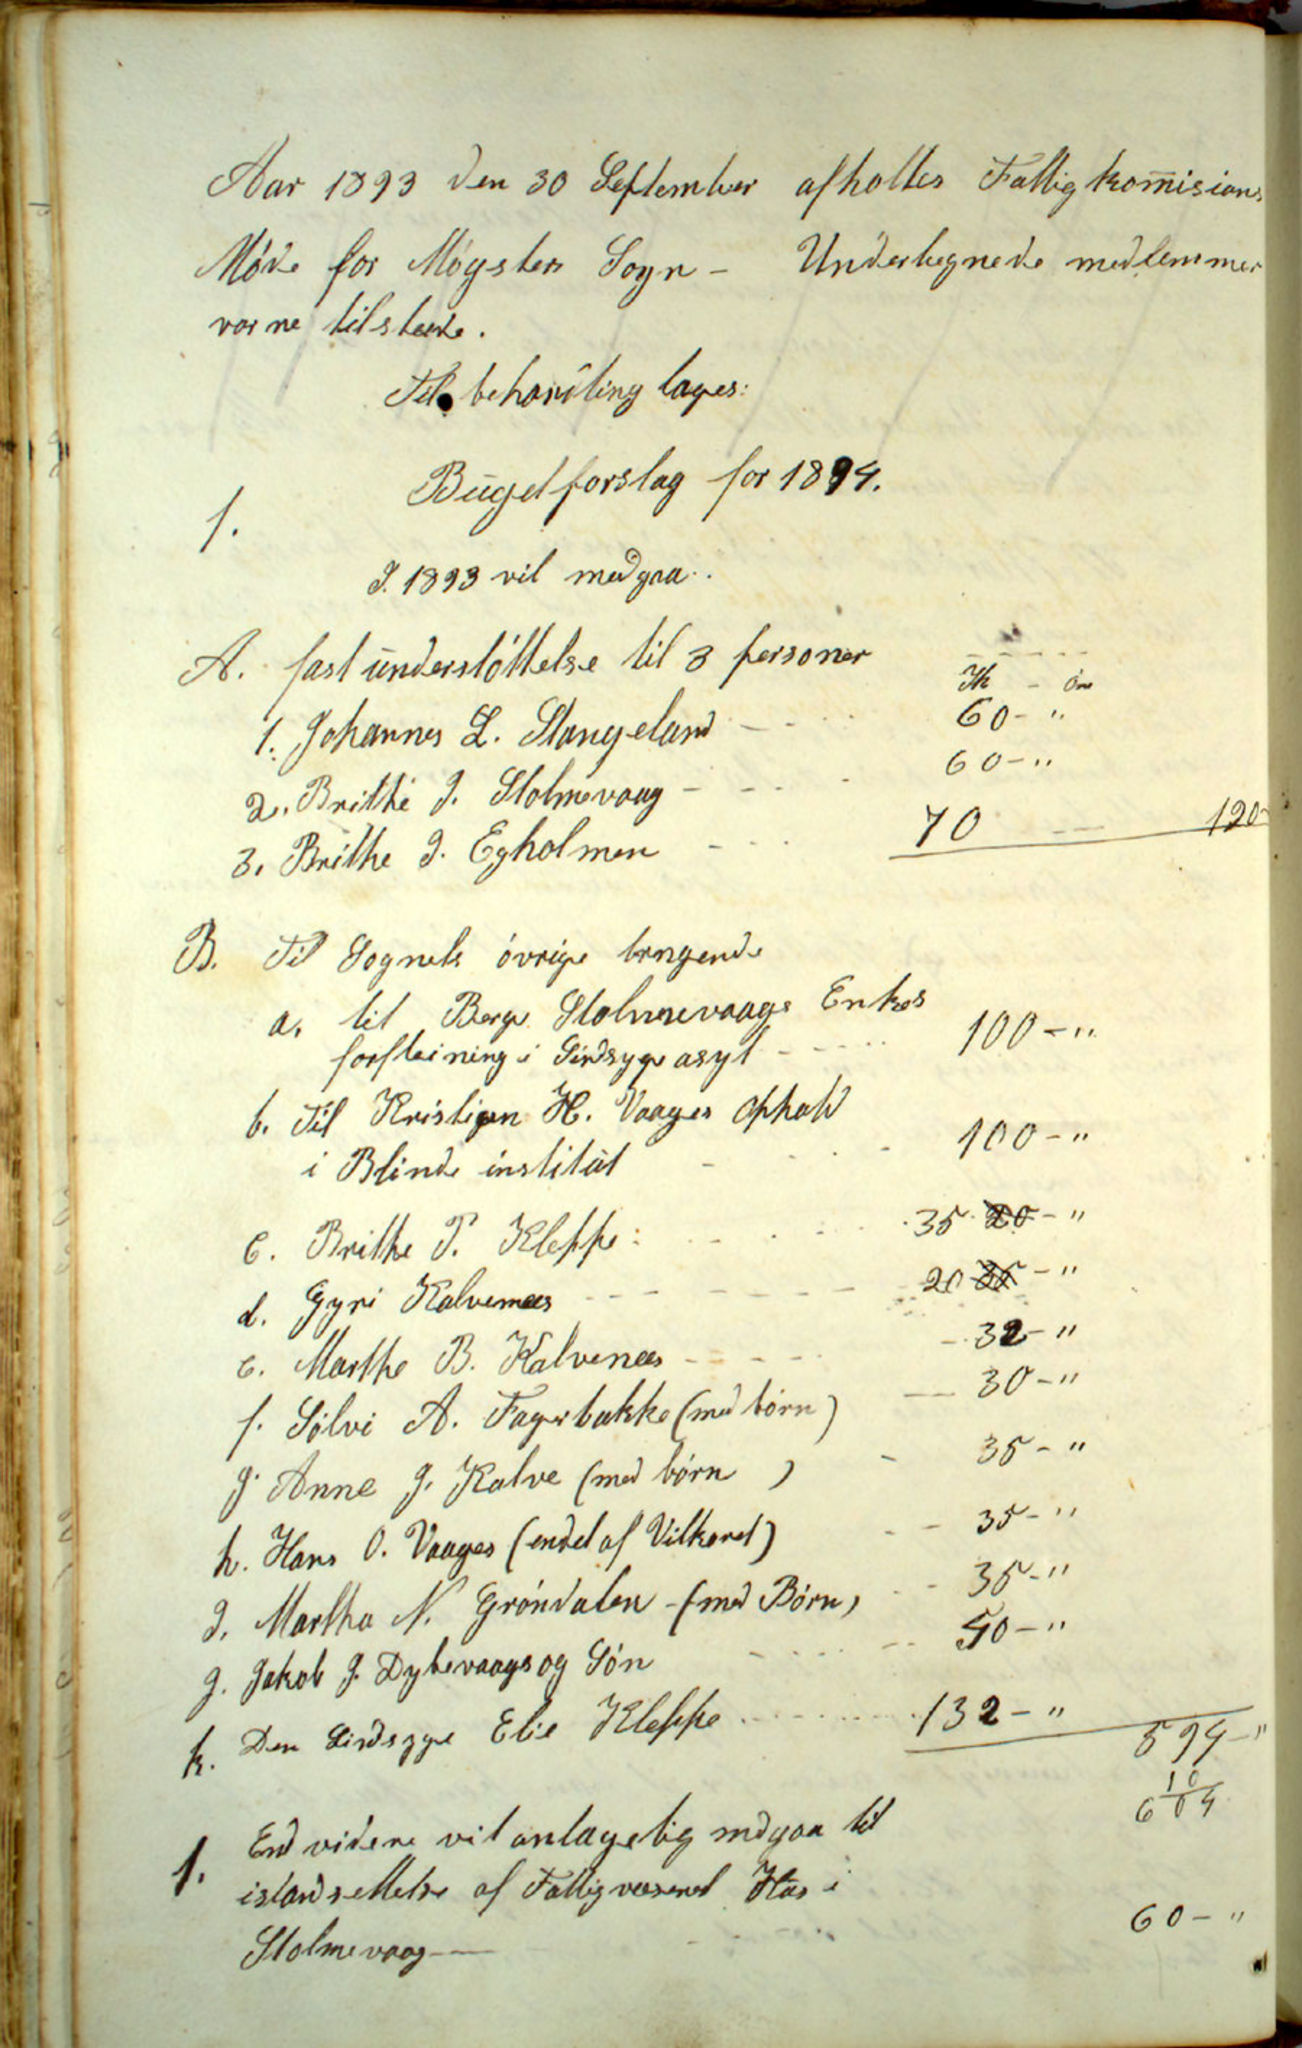 Aar 1893 den 30 September afholtes Fattigkom̅isions
Møde for Møgster Sogn - Undertegnede medlemmer
varne tilstede.
Til behandling toges:
1. Bugetforslag for 1894.
I 1893 vil medgaa.
A. fast understøttelse til 3 personer
Kr - Øre
1. Johannes L. Stangeland - - - 60 - "
2. Brithe J. Stolmevaag - - - 60 - "
3. Brithe J. Egholmen - - - 70 - - 120
B. Til Sognets øvrige trngende
a. til Berge Stolmevaags Enkes
forpleining i Sindsyge asyl - - - 100 - "
b. Til Kristigan H. Vaages Ophold
i Blinde institut - - - 100 - "
c. Brithe P. Kleppe: - - - 35 20 - "
d. Gyri Kalvenæs - - - 20 35 - "
e. Marthe B. Kalvenæs - - - 32 - "
f. Sølvi A. Fagerbakke (med børn) - 30 - "
g. Anne J. Kalve (med børn ) - 35 - "
h. Hans O. Vaages (endel af Vilkaret) - - 35 - "
I. Martha N. Grøndalen - (med Børn) - - 35 - "
J. Jakob J. Dybevaags og Søn - - - 50 - "
k. Den Sindsyge Elie Kleppe - - - 132 - " 594 - "
10
604
1. End videre vil antagelig mdgaa til
istandsettelse af Fattigvæsenet Hus i
Stolmevaag - - 60 - "